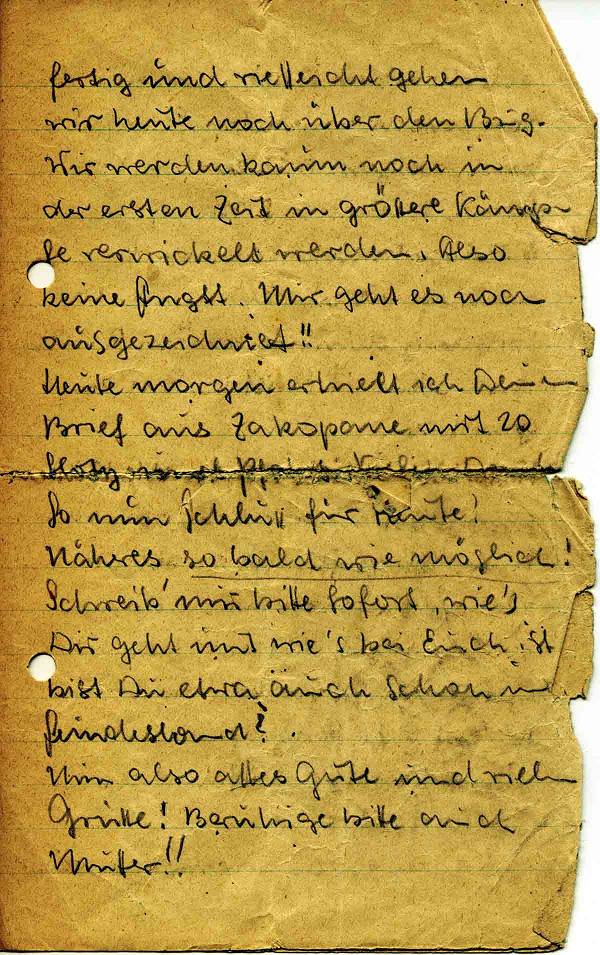 fertig und vielleicht gehen
wir heute noch über den Bug.
Wir werden kaum noch in
der ersten Zeit in größere Kämp-
fe verwickelt werden. Also
keine Angst. Mir geht es noch
ausgezeichnet!!
Heute morgen erhielt ich Deinen
Brief aus Zakopane mit 20
Sloty und
So nun Schluß für heute!
Näheres so bald wie möglich!
Schreib' mir bitte sofort, wie's
Dir geht und wie's bei Euch ist
bist Du etwa auch schon in
Feindesland?
Nun also alles Gute und viele
Grüße! Beruhige bitte auch
Mutter!!